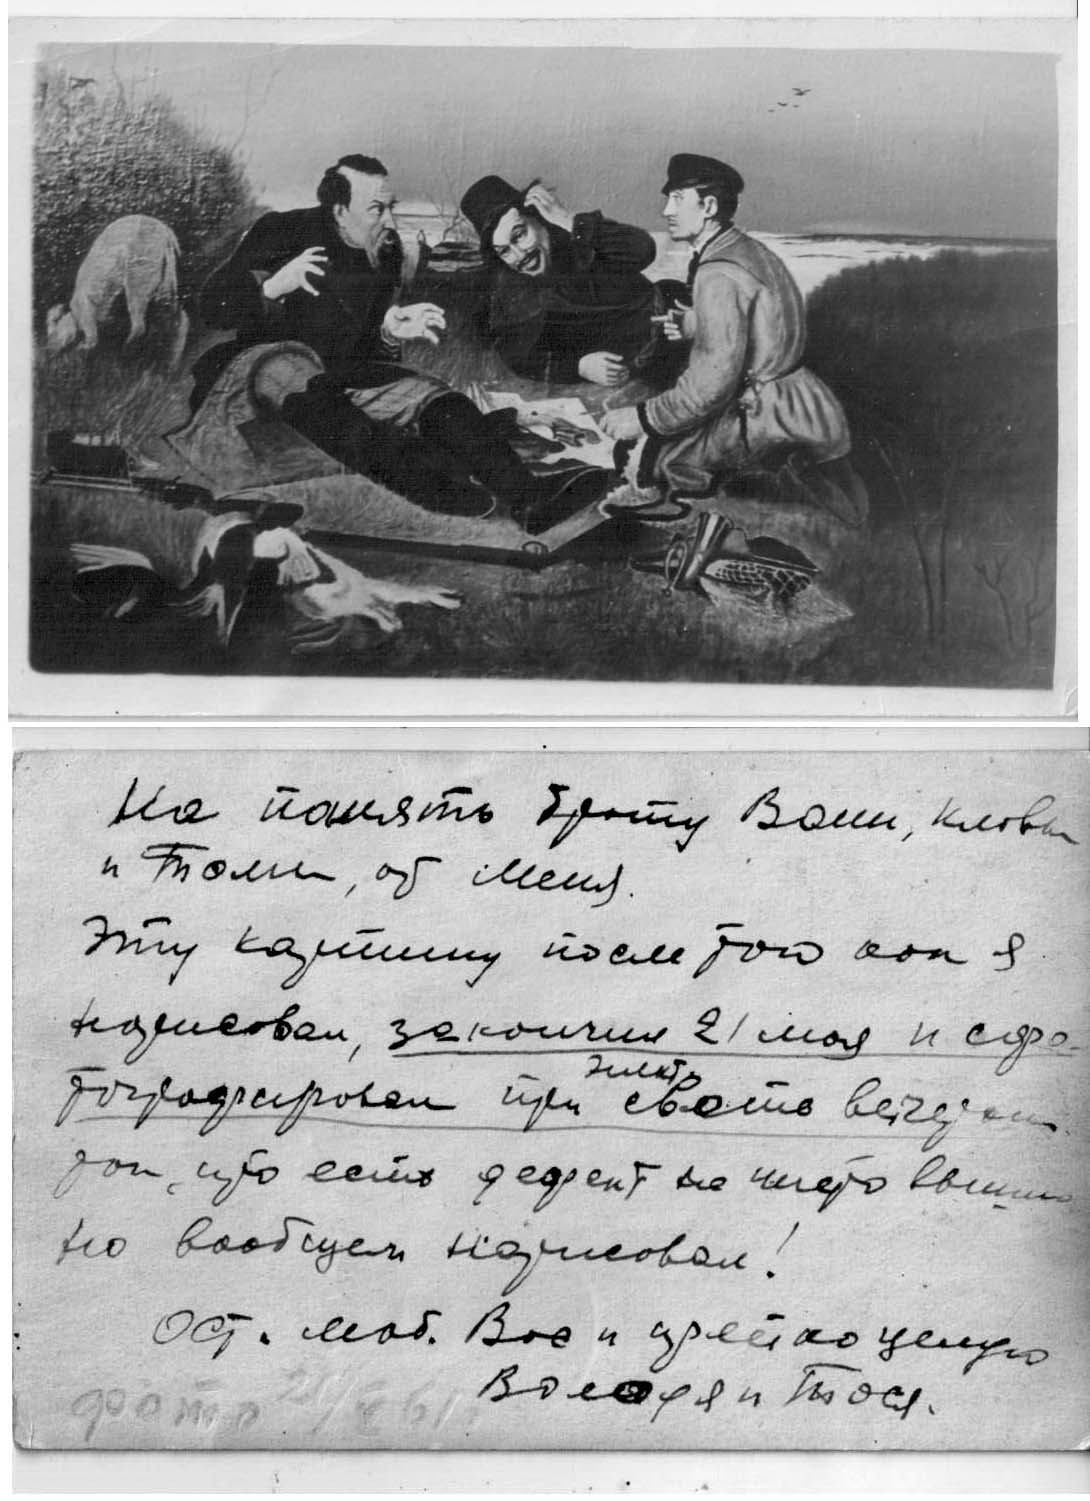 На память брату Вани, Клавы
и Толи, от меня.
Эту картину после того как я
нарисовал, закончил 21 мая и сфо-
тографировал при элект. свете вечером
так что есть дефект не чисто вышло
но вообщем нарисовал!
Ост. люб. Вас и крепко целую
Володя и Тося.
фото 21/